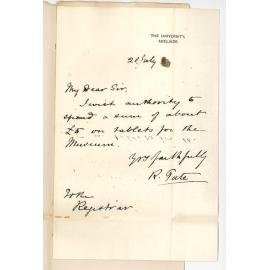 THE UNIVERSITY,
ADELAIDE.
20 July
My Dear Sir,
I wish authority to
spend a sum of about
£5 on tablets for the
Museum.
Yrs faithfully
R. Tate
To the
Registrar